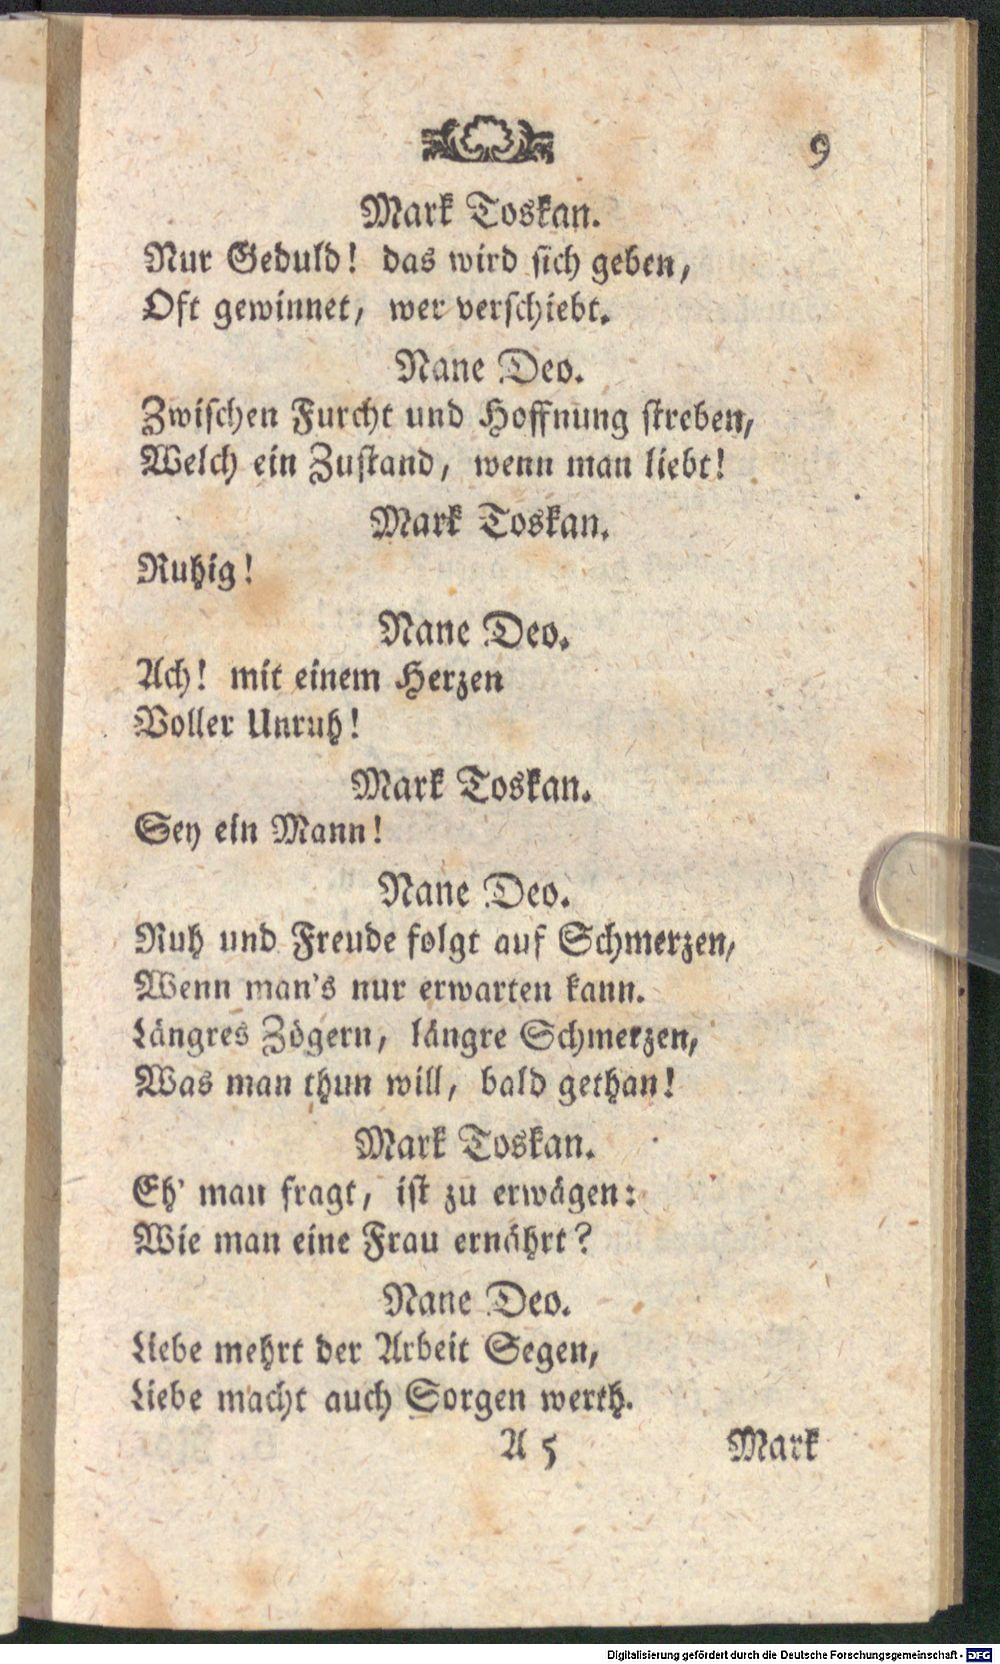 9
Mark Toskan.
Nur Geduld! das wird sich geben,
Oft gewinnet, wer verschiebt.
Nane Deo.
Zwischen Furcht und Hoffnung streben,
Welch ein Zustand, wenn man liebt!
Mark Toskan.
Ruhig!
Nane Deo.
Ach! mit einem Herzen
Voller Unruh!
Mark Toskan.
Sey ein Mann!
Nane Deo.
Ruh und Freude folgt auf Schmerzen,
Wenn man's nur erwarten kann.
Längres Zögern, längre Schmerzen,
Was man thun will, bald gethan!
Mark Toskan.
Eh' man fragt, ist zu erwägen:
Wie man eine Frau ernährt?
Nane Deo.
Liebe mehrt der Arbeit Segen,
Liebe macht auch Sorgen werth.
A 5 Mark
Digitalisierung gefördert durch die Deutsche Forschungsgemeinschaft - DFG